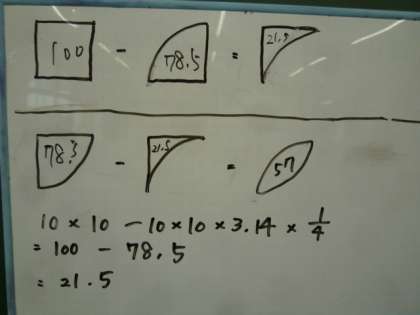 100 - 78.5 = 21.5
78.3 - 21.5 = 57
10 × 10 - 10 × 10 × 3.14 × 1/4
= 100 - 78.5
= 21.5